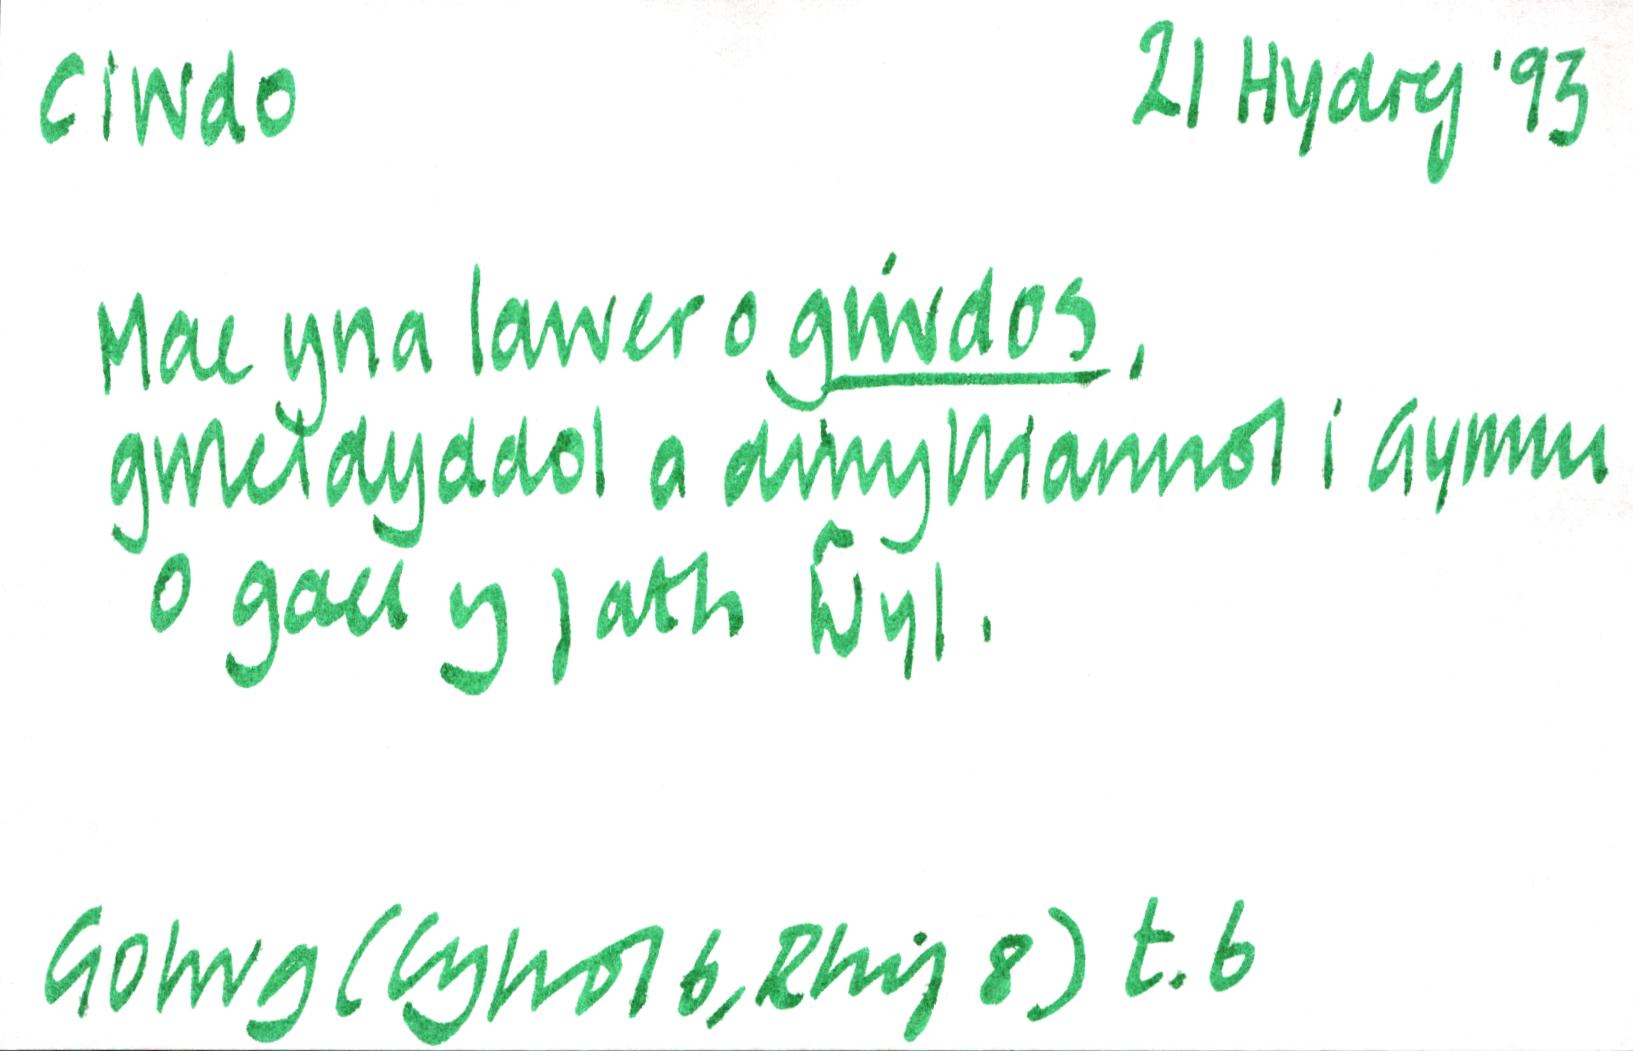 Ciwdo 21 Hydref '93
Mae yna lawer o giwdos,
gwleidyddol a diwylliannol i Gymru
o gael y fath Ŵyl.
Golwg (Cyfrol 6, Rhif 8) t. 6